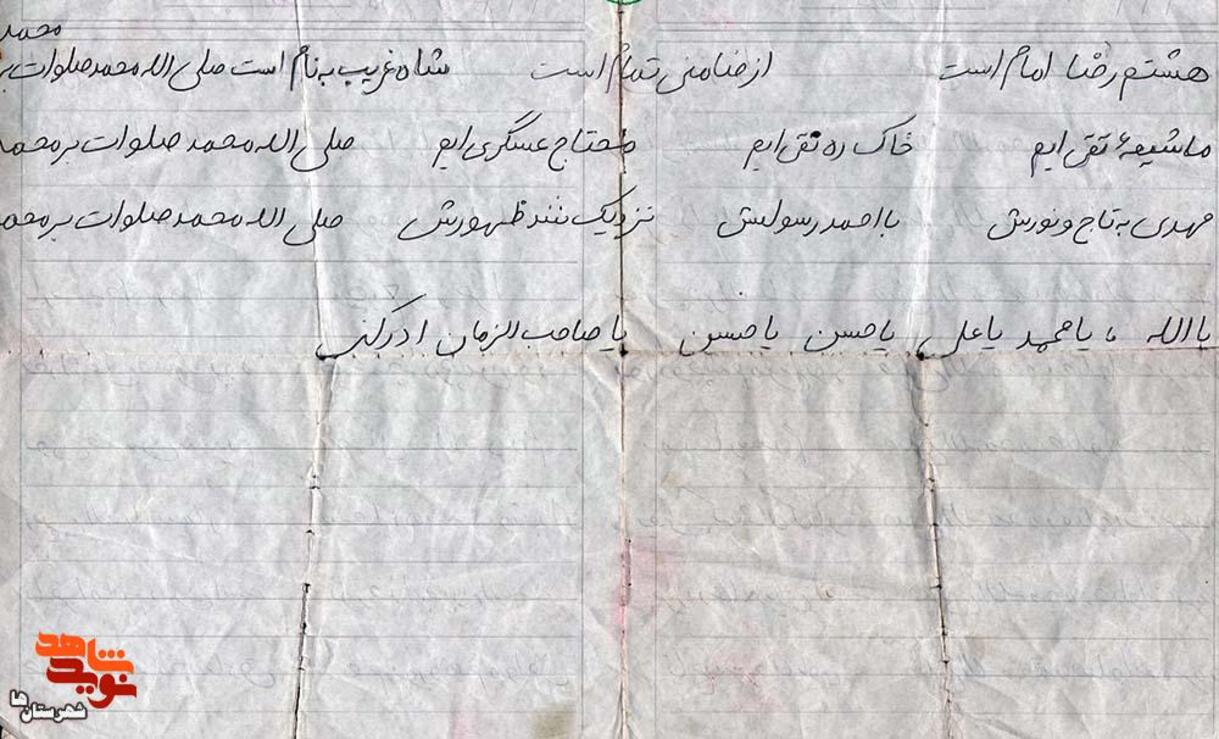 محمد
هشتم رضا امام است از ضامنی تمام است شاه غریب به نام است صلی الله محمد صلوات بر
ما شیعهٔ تقی ایم خاک ره نقی ایم محتاج عسگری ایم صلی الله محمد صلوات بر محمد
مهدی به تاج و نورش با احمد رسولش نزدیک شد ظهورش صلی الله محمد صلوات بر محمد
یا الله ، یا محمد یا علی یا حسن یا حسین یا صاحب الزمان ادرکنی
شاهد
نوید
شهرستان ها